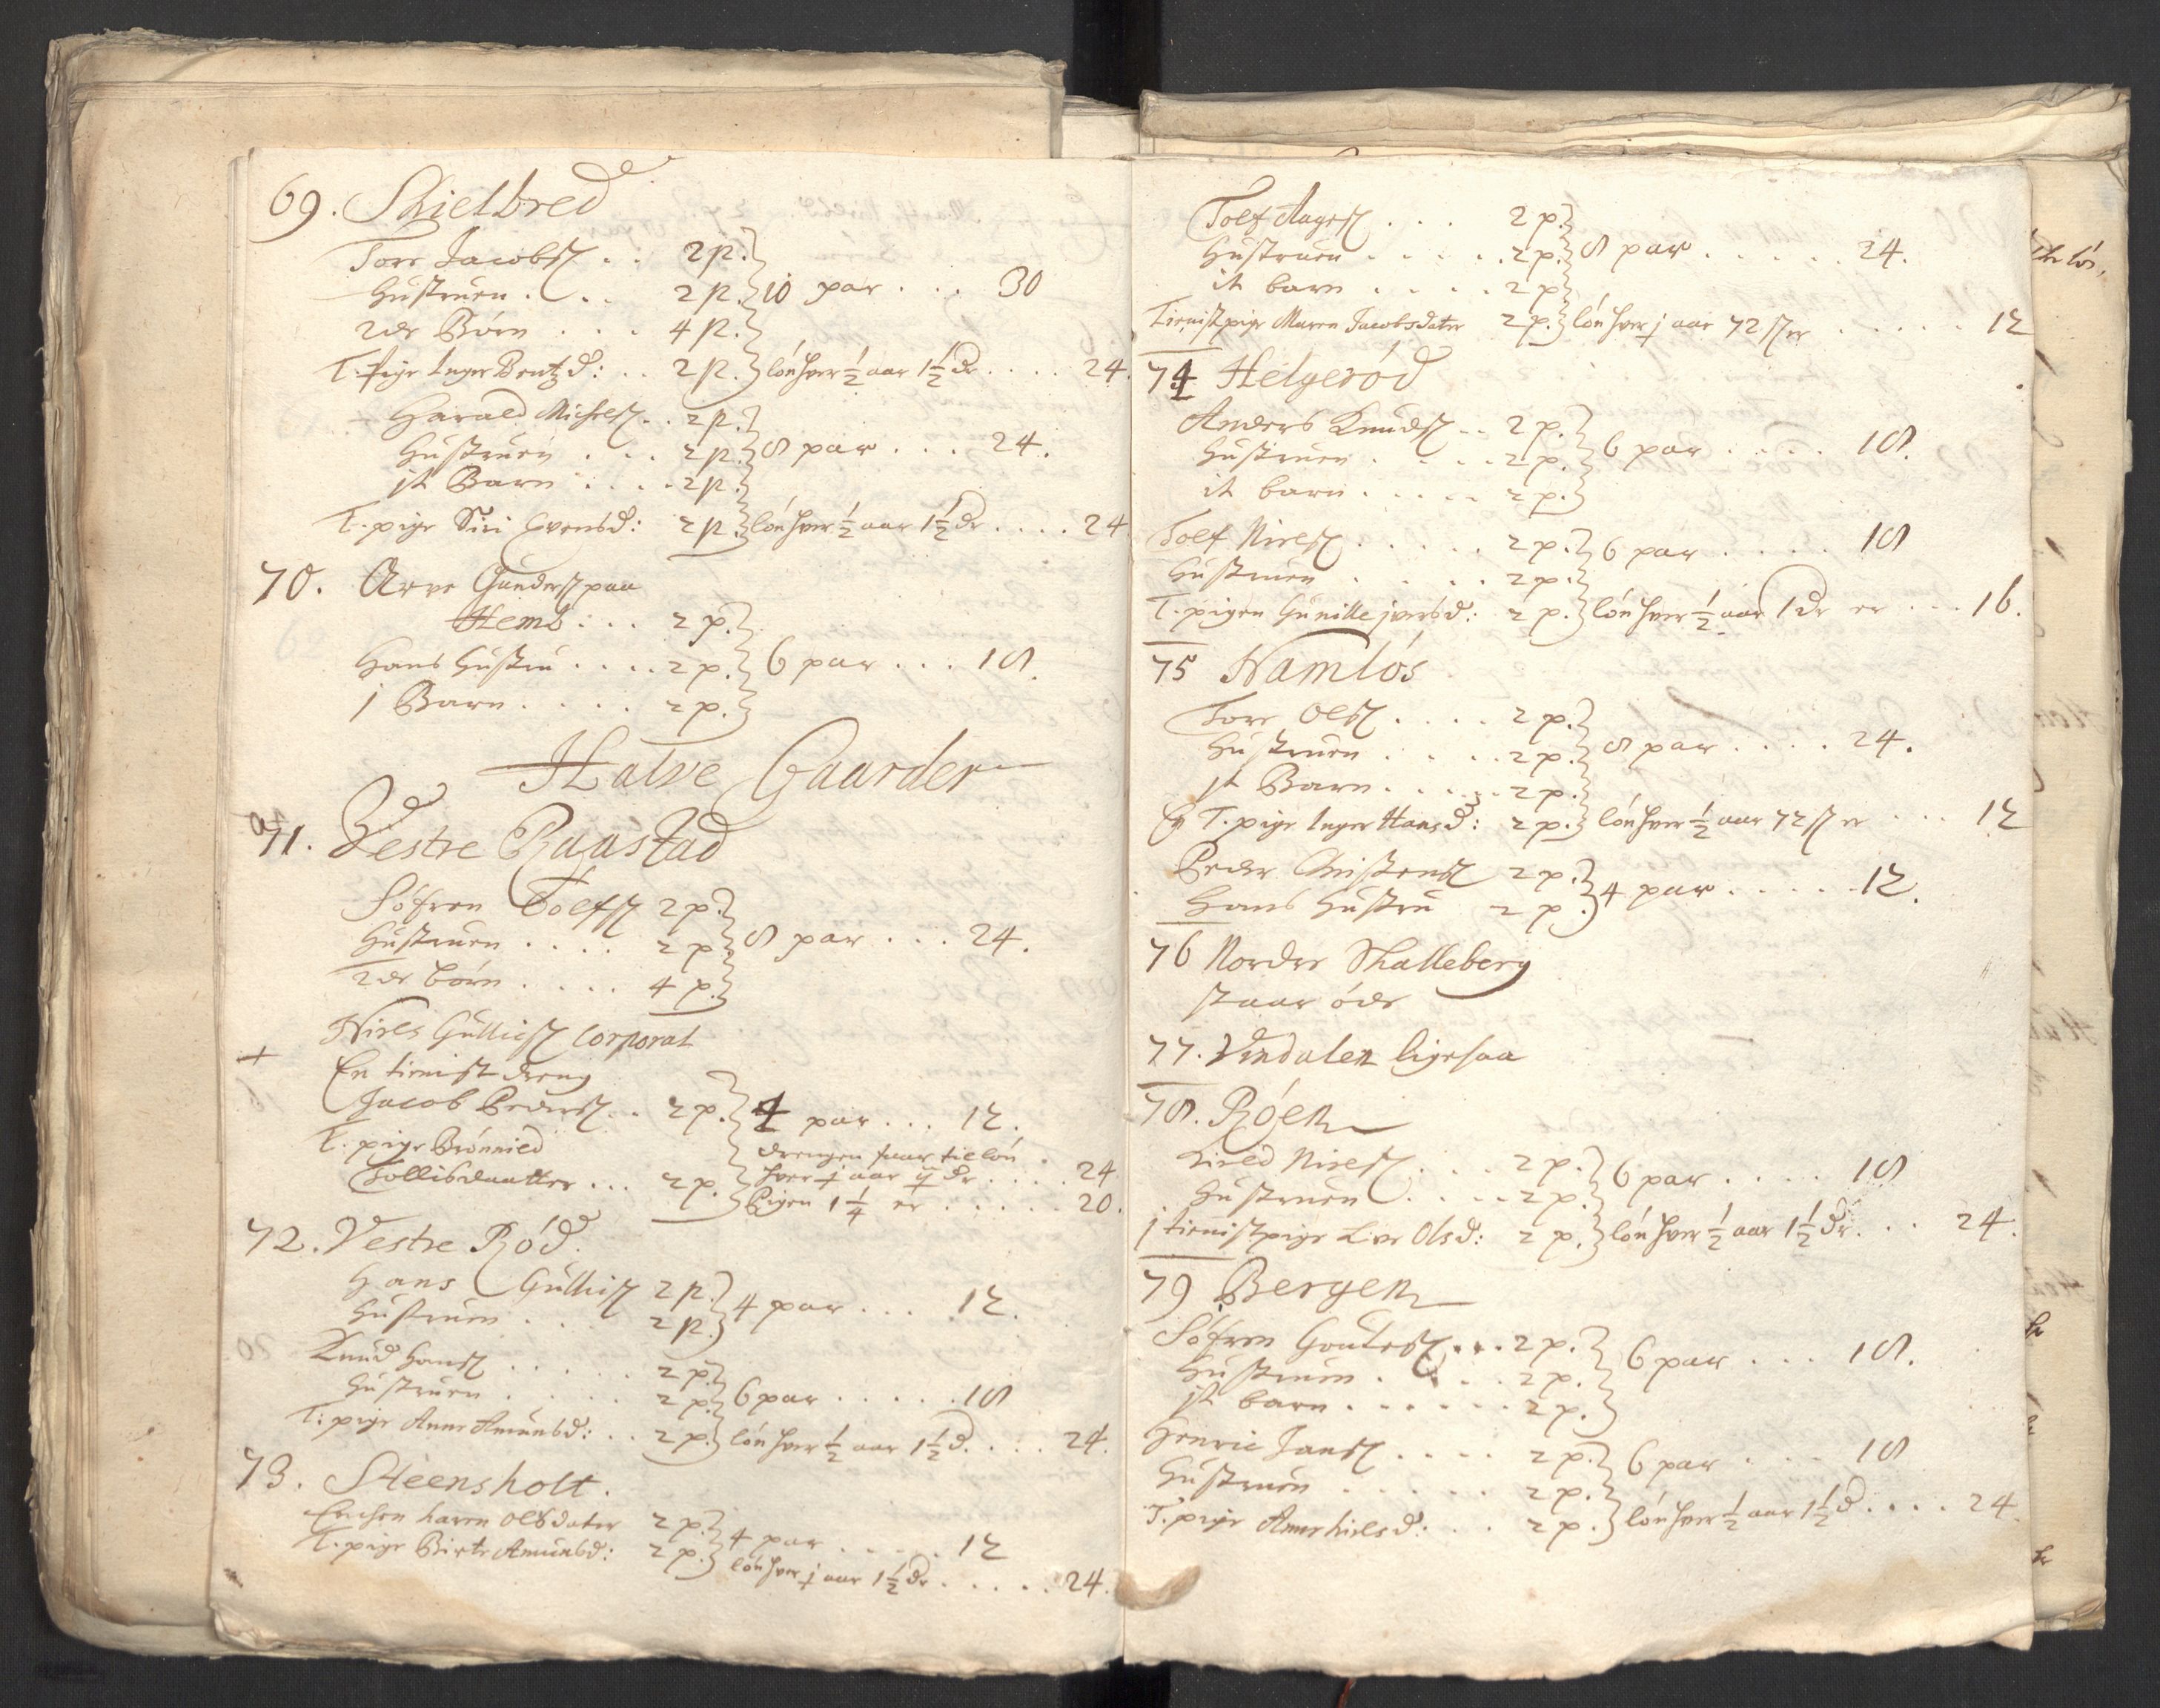 69. Skielbred
Tore Jacobs. . . 2 p.
Hustruen . . . 2 p. 10 par . . . 30
2de Börn . . . 4 p.
T. Pige Inger Bentzd: . . 2 p. lön hver 1/2 aar 1 1/2 dr . . . . 24.
Harald Michels. . . 2 p.
Hustruen . . . 2 p. 8 par . . . 24.
jt Barn . . . . 2 p.
T. pige Siri Svensd: 2 p. lön hver 1/2 aar 1 1/2 dr . . . . 24
70. Arve Gunders paa
Hemb . . . 2 p.
Hans Hustru . . . . 2 p. 6 par . . . 18.
j Barn . . . . 2 p.
Halve Gaarder
71. Vestre Raastad
Söfren Tolfs 2 p.
Hustruen . . . . 2 p. 8 par . . . 24.
2de börn . . . . 4 p.
Niels Gullichs Corporal
+ En tienist dreng
Jacob Peders. . . 2 p. 4 par . . . 12.
T. pige Brönnied drengen faar til lön
Tollisdaatter . . . 2 p. hver j aar dr . . . . 24
Pigen 1 1/4 er . . . . . 20.
72. Vestre Röd.
Hans Gullichs 2 p. 4 par . . . 12.
Hustruen . . . 2 p.
Knud Hans . . . . . 2 p.
Hustruen . . . . . 2 p. 6 par . . . . . 18
T: pige Anne Amunsd: . . 2 p. lön hver 1/2 aar 1 1/2 d. . . . 24.
73. Steensholt.
Enchen Karen Olsdater 2 p. 4 par . . . . . 12
T. pige Birte Amunsd: 2 p. lön hver j aar 1 1/2 dr . . . . . 24.
Tolf Aages . . . 2 p.
Hustruen . . . . . 2 p. 8 par . . . . . 24.
it barn . . . . 2 p.
Tienistpige Maren Jacobsdater 2 p. lön hver j aar 72 s er . . . . . 12
74 Helgeröd
Anders Knuds . . 2 p.
Hustruen . . . . 2 p. 6 par . . . . 18.
it barn . . . . . 2 p.
Tolf Niels . . . . . 2 p. 6 par . . . . 18
Hustruen . . . . 2 p.
T. pigen Gunille jversd: 2 p. lön hver 1/2 aar 1 dr er . . . 16.
75 Namlös
Tore Ols . . . . 2 p.
Hustruen . . . . 2 p. 8 par . . . . 24.
jt Barn . . . . . 2 p.
En T. pige Inger Hansd: 2 p. lön hver 1/2 aar 72 s er . . . 12
Peder Christens 2 p. 4 par . . . . . 12.
Hans Hustru 2 p.
76 Nordre Skalleberg
staar öde
77. Vindalen ligesaa
78. Röen
Niels . . . 2 p. 6 par . . . . 18
Hustruen . . . . 2 p.
j tienistpige Live Olsd: 2 p. lön hver 1/2 aar 1 1/2 dr . . . 24.
79 Bergen
Söfren Goutes . . . 2 p.
Hustruen . . . . 2 p. 6 par . . . 18.
jt barn . . . . . . 2 p.
Henric Jans . . . . 2 p. 6 par . . . 18
Hustruen . . . . . 2 p.
T. pige Anne Nielsd: . . . 2 p. lön hver 1/2 aar 1 1/2 d . . . . 24